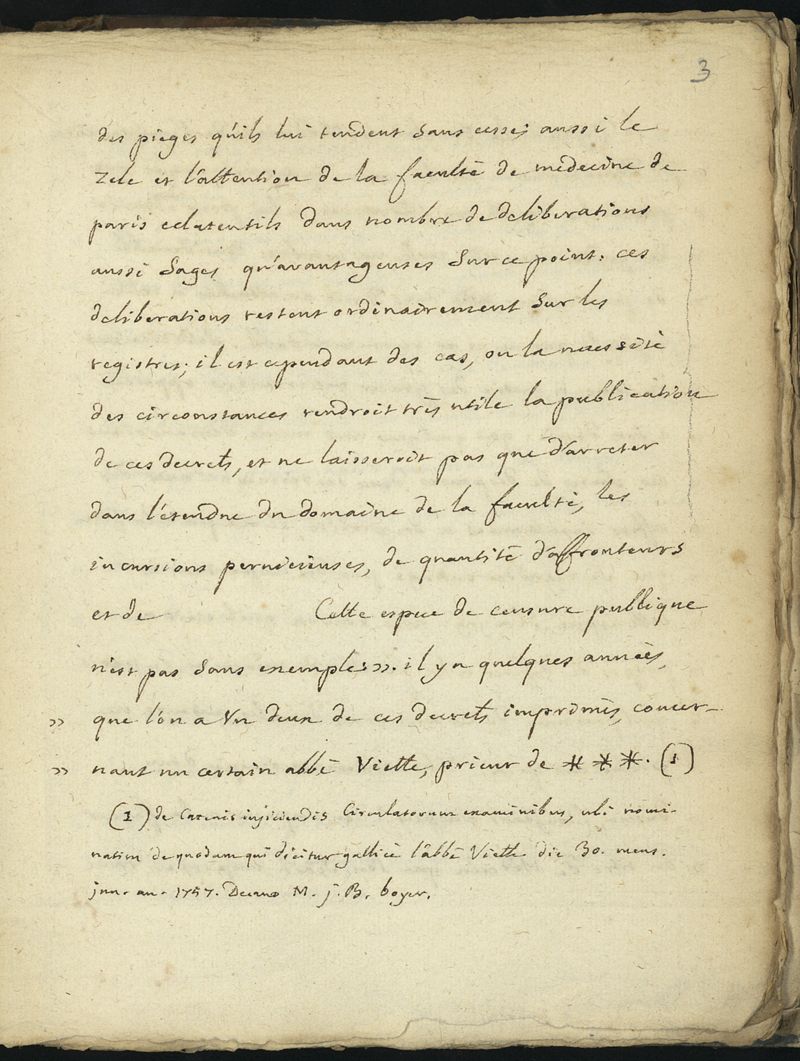 3
des pieges qu'ils lui tendent sans cesse; aussi le
zele et l'attention de la faculté de médecine de
paris eclatent ils dans nombre de deliberations
aussi sages qu'avantageuses sur ce point. ces
deliberations restent ordinairement sur les
registres; il est cependant des cas, ou la necessité
des circonstances rendroit très utile la publication
de ces decrets, et ne laisseroit pas que d'arreter
dans l'étendue du domaine de la faculté, les
incursions pernicieuses, de quantité d'affronteurs
et de Cette espece de censure publique
n'est pas sans exemples». il y a quelques années,
» que l'on a vu deux de ces decrets imprimés, concer-
» nant un certain abbé Viette, prieur de * * *. (1)
(1) de Catenis injiciendis Circulatorum examinibus, ubi nomi-
natim de quodam qui dicitur gallicè l'abbé Viette die 30. mens.
jun. an. 1757. Decano M. j. B. boyer.